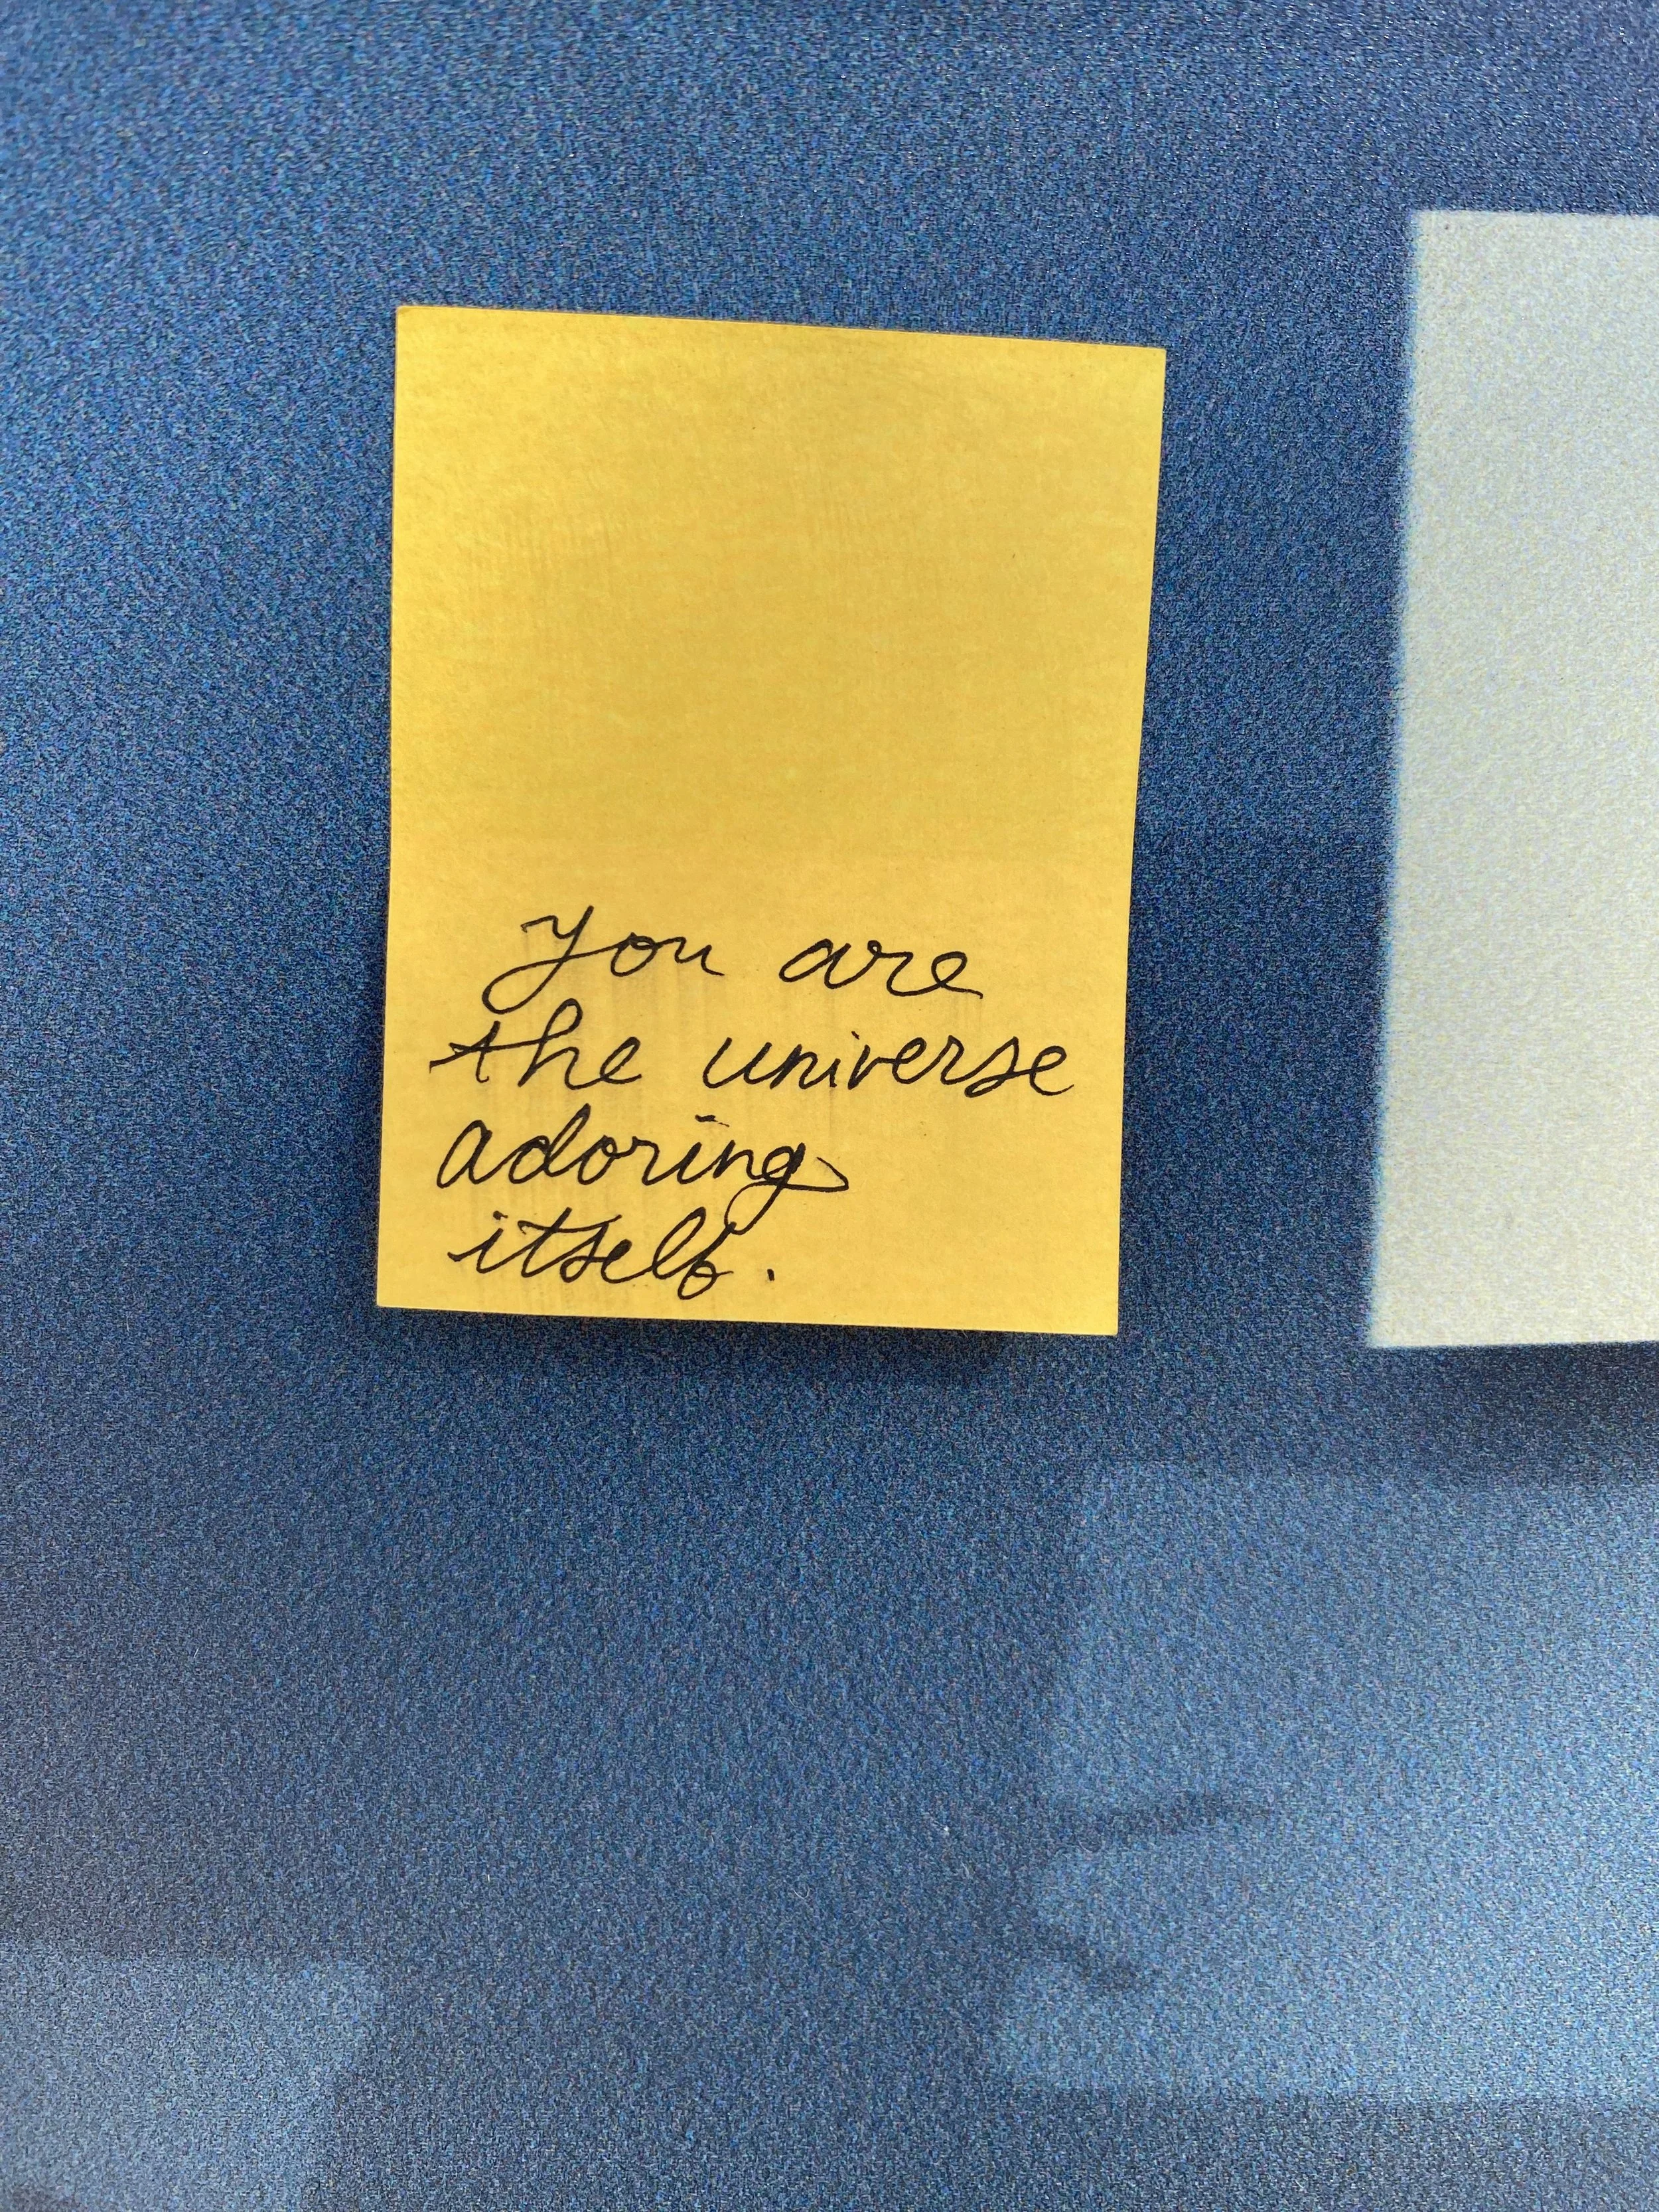 you are
the universe
adoring
itself.